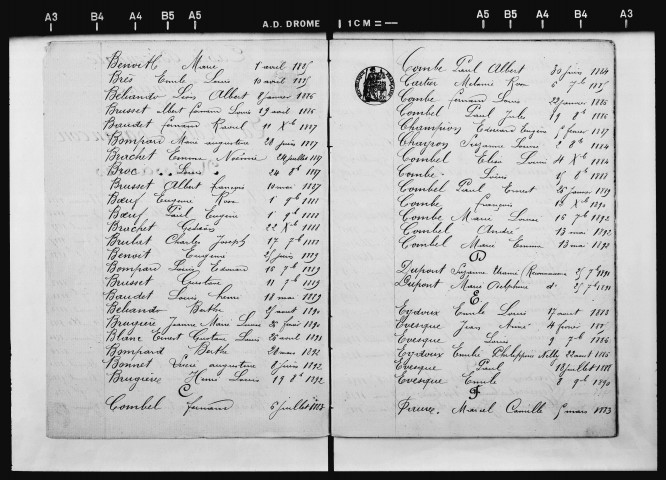 A3 B4 A4 B5 A5 A.D. DROME 1CM A5 B5 A4 B4 A3
Benoit Marie 1 avril 1885
Brès Emile Louis 10 avril 1885
Béliando Léon Albert 8 janvier 1886
Brusset Albert Fernand Louis 19 avril 1886
Baudet Fernand Raoul 11 Xbre 1887
Bompard Marie augustine 28 juin 1887
Brachet Emma Noémie 24 juillet 1887
Broc Louis 24 8bre 1887
Brusset Albert françois 10 mai 1887
Bœuf Eugène 1er 9bre 1888
Bœuf Paul Eugène 1er 9bre 1888
Brachet 22 Xbre 1888
Brulat Charles Joseph 17 7bre 1888
Benoit Eugénie 25 juin 1889
Bompard Louis Edouard 16 7bre 1889
Brusset Gustave 11 7bre 1889
Baudet Louis henri 18 mai 1889
Béliando Berthe 25 août 1890
Brugière Jeanne Marie Louise 1890
Blanc Ernest Gustave Louis 26 avril 1891
Bompard Berthe 28 mars 1892
Bonnet augustine 8 juin 1892
Brugière Henri Louis 19 8bre 1892
C
Combel fernand 5 juillet 1883
Combe Paul Albert 30 juin 1884
Cartier Mélanie Rose 5 7bre 1885
Combe Fernand Louis 22 janvier 1886
Combel Paul Jules 19 8bre 1886
Champion Edouard Eugène 5 février 1887
Chayron Suzanne Louise 8bre 1884
Combel Elisa Louise 4 Xbre 1884
Combe Louis 15 8bre 1888
Combel Paul Ernest 26 janvier 1889
Combe françois Xbre 1890
Combe Marie Louise 16 7bre 1892
Combel André 13 mai 1892
Combel Marie Emma 13 mai 1892
D
Dupont Suzanne 25 7bre 1891
Dupont Marie Delphine d° 25 7bre 1891
E
Eydoux Emile Louis 17 août 1883
Evesque Jean 4 février 1885
Evesque Louis 9 7bre 1886
Eydoux Emile Philippine Nelly 22 août 1886
Evesque Paul 18 juillet 1888
Evesque Emile 8 9bre 1890
F
Marcel Camille 5 mars 1883